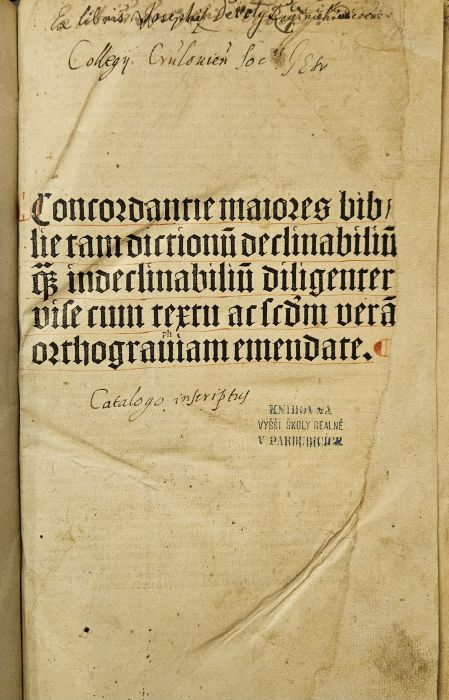 Ex libris Josephi De
Collegij Crulovien Soc
Concordantie maiores bib⸗
lie tam dictionū declinabiliū
qȝ indeclinabiliū diligenter
vise cum textu ac scḋm verā
ph
orthograuiam emendate.
Catalogo inscriptus
KNIHOVNA
VYŠŠÍ ŠKOLY REALNÉ
V PARDUBICÍCH